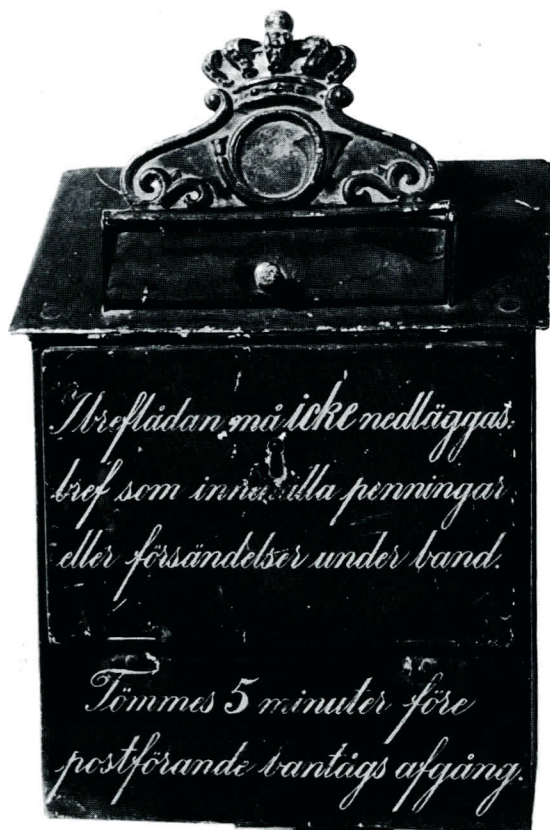 I breflådan må icke nedläggas
bref som innehålla penningar
eller försändelser under band.
Tömmes 5 minuter före
postförande bantågs afgång.